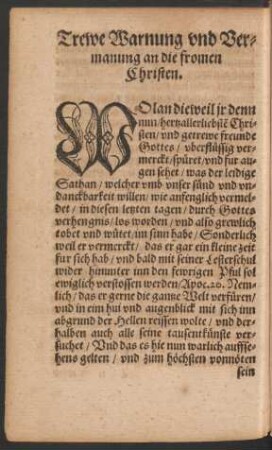 Trewe Warnung vnd Ver-
manung an die fromen
Christen.
WOlan dieweil jr denn
nun / hertzallerliebste Chri-
sten / vnd getrewe freunde
Gottes / vberflüssig ver-
merckt / spüret / vnd fur au-
gen sehet / was der leidige
Sathan / welcher vmb vnser sünd vnd vn-
danckbarkeit willen / wie anfenglich vermel-
det / in diesen letzten tagen / durch Gottes
verhengnis / los worden / vnd also grewlich
tobet vnd wütet / im sinn habe / Sonderlich
weil er vermerckt / das er gar ein kleine zeit
fur sich hab / vnd bald mit seiner Lesterschul
wider hinunter inn den fewrigen Pful sol
ewiglich verstossen werden / Apoc. 20. Nem-
lich / das er gerne die gantze Welt verfüren /
vnd in eim hui vnd augenblick mit sich inn
abgrund der Hellen reissen wolte / vnd der-
halben auch alle seine tausentkünste ver-
suchet / Vnd das es hie nun warlich auffse-
hens gelten / vnd zum höchsten vonnöten
sein